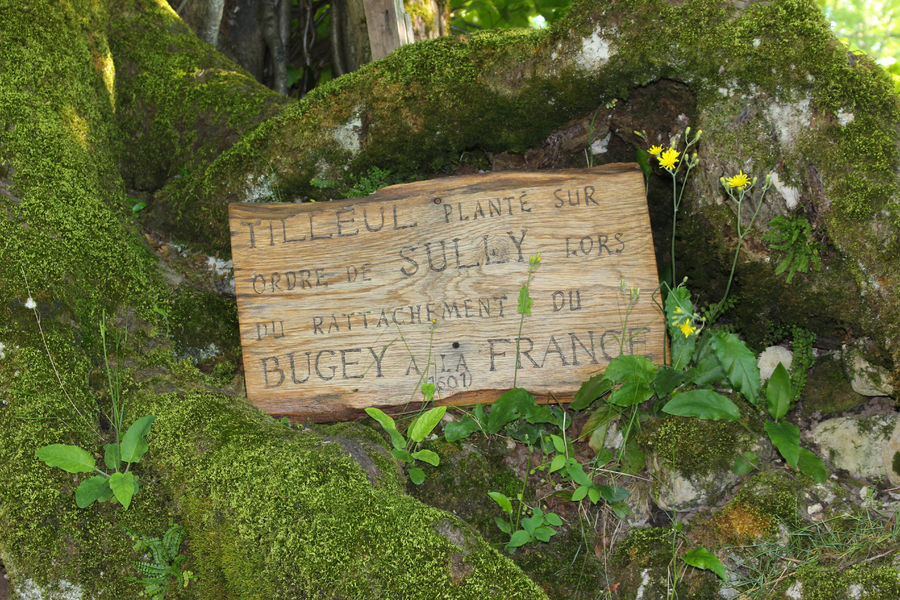 TILLEUL PLANTÉ SUR
ORDRE DE SULLY LORS
DU RATTACHEMENT DU
BUGEY A LA FRANCE
(1601)